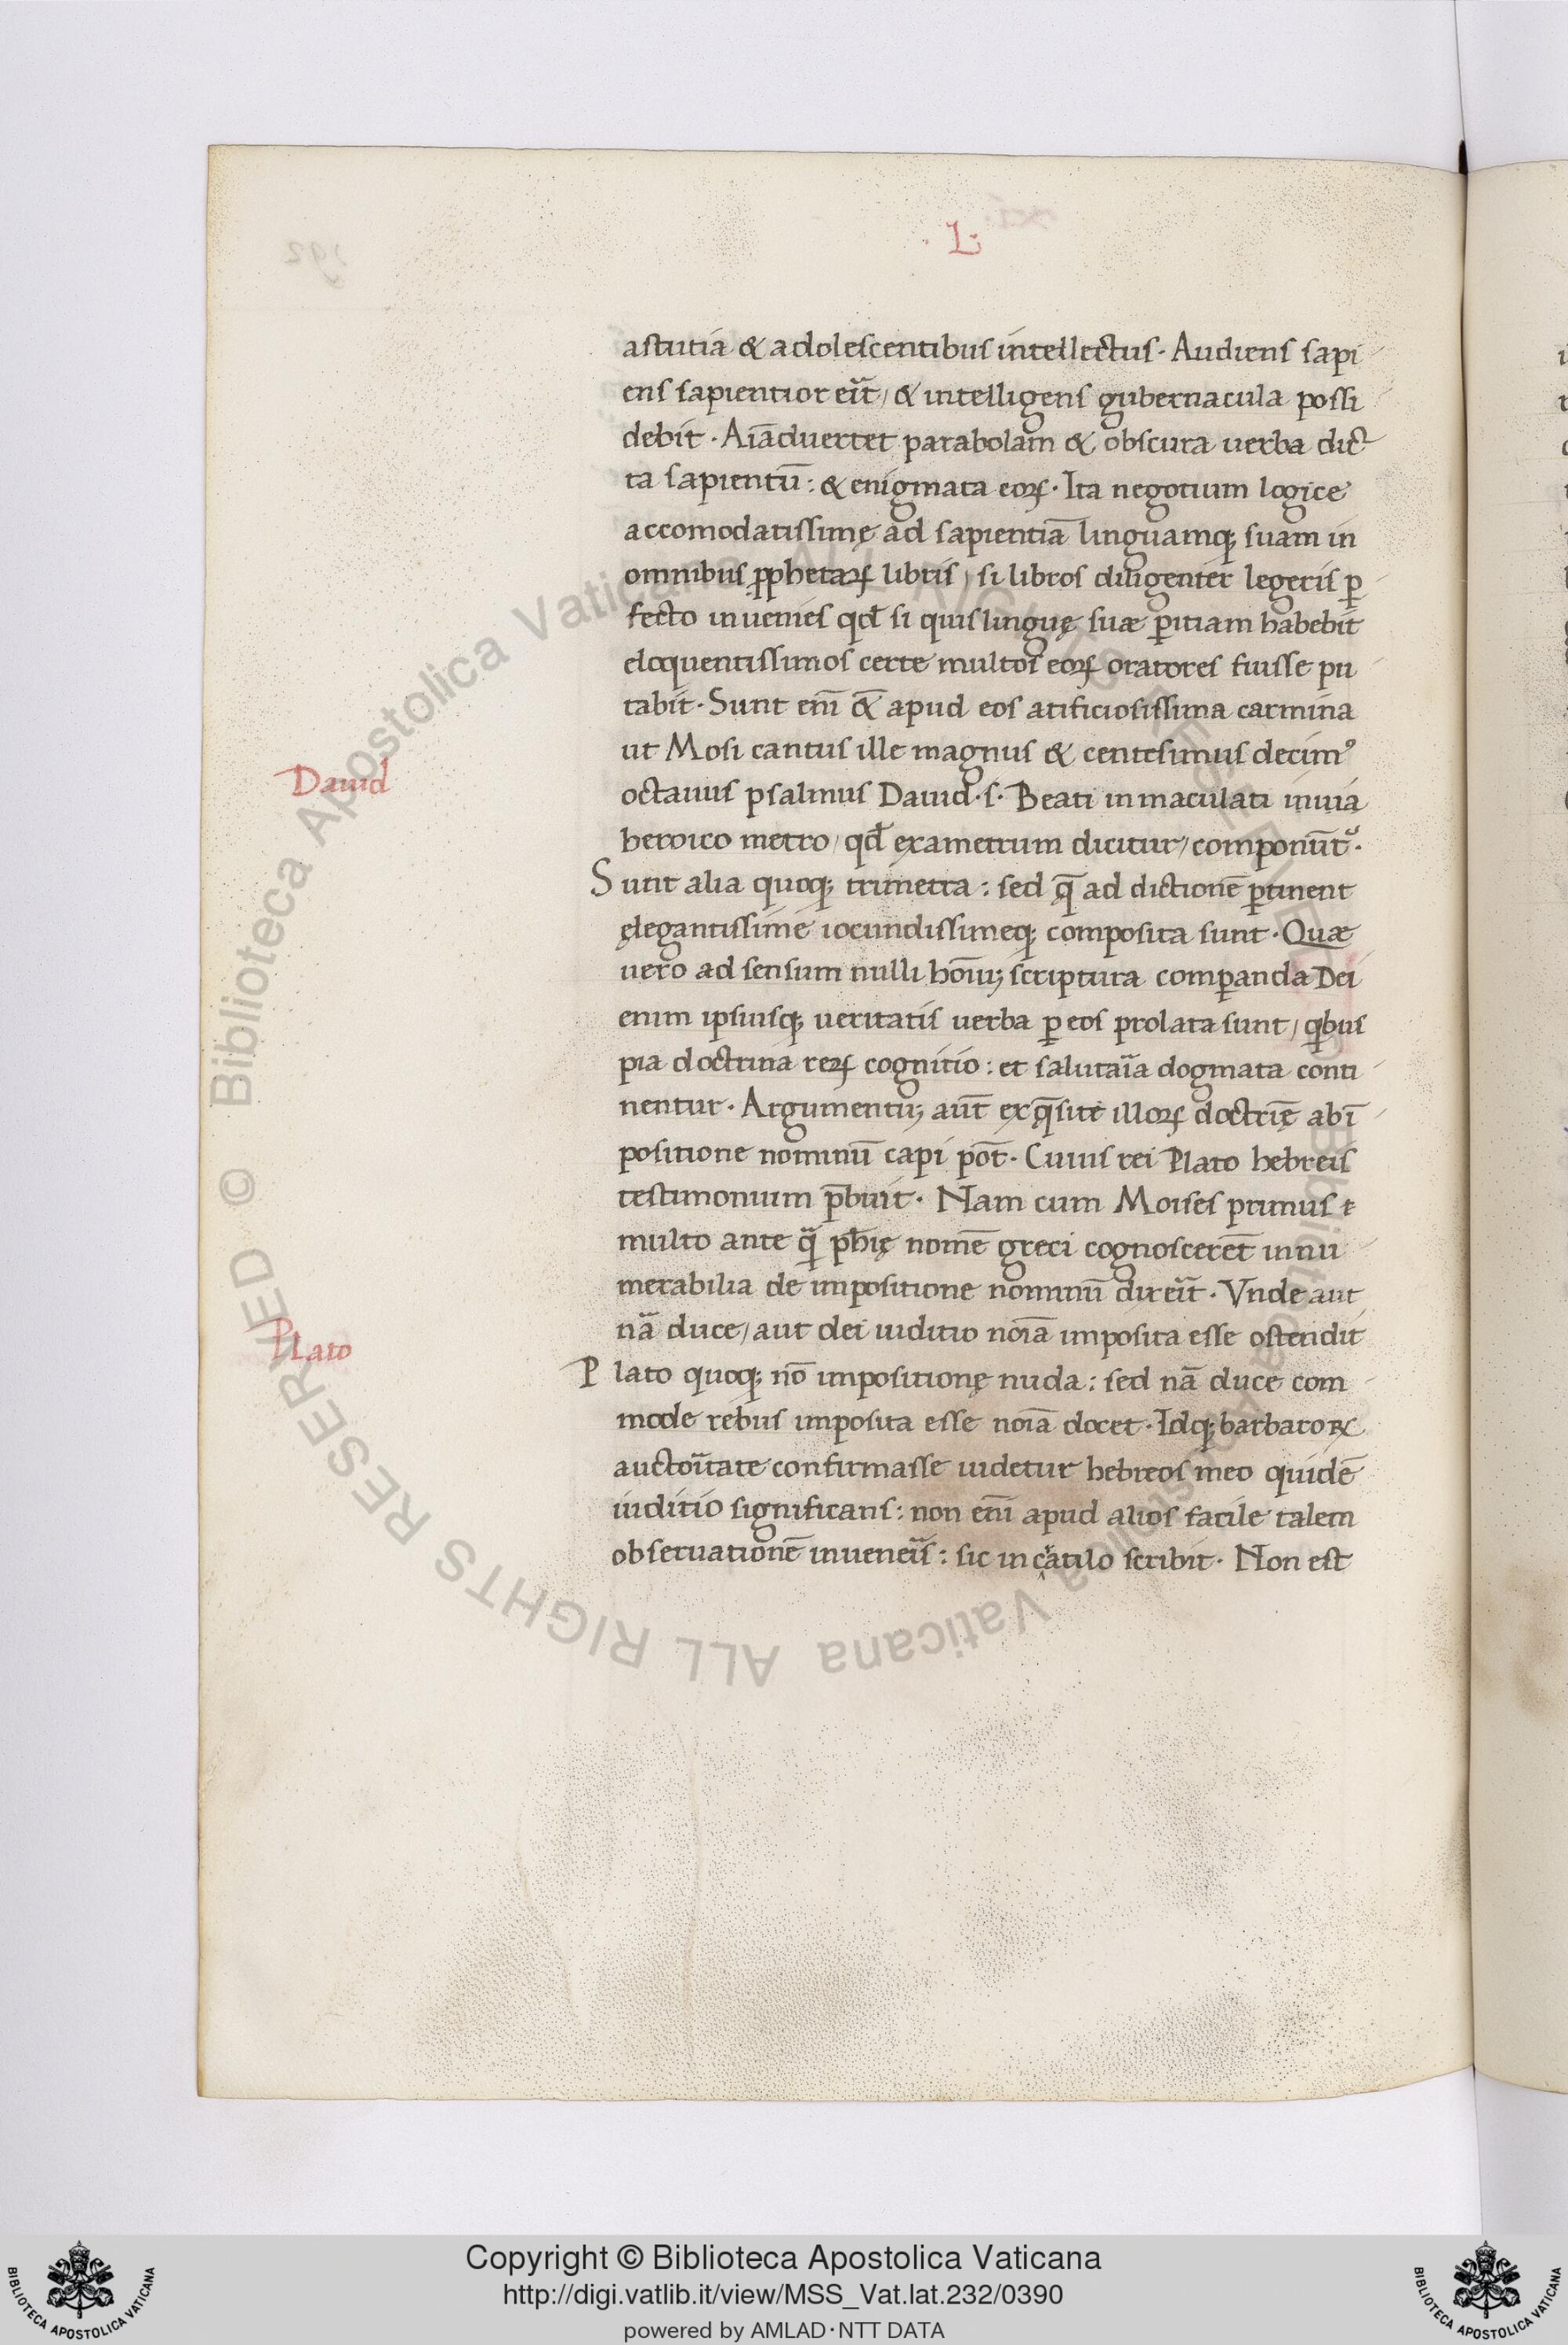 · L ·
astutia & adolescentibus intellectus · Audiens sapi
ens sapientior erit / & intelligens gubernacula possi
debit · Aĩaduertet parabolam & obscura uerba dict
ta sapientũ : & enigmata eorꝝ · Ita negotium logice
accomodatissimę ad sapientiã linguamqꝫ suam in
omnibus ꝓphetarꝝ libris / si libros diligenter legeris ꝑ
fecto inuenies qđ si quis linguę suæ ꝑitiam habebit
eloquentissimos certe multos eorꝝ oratores fuisse pu
tabit · Sunt eni̅ &̅ apud eos atificiosissima carmina
ut Mosi cantus ille magnus & centesimus decimꝰ
David
octauus psalmus Dauid · s · Beati inmaculati inuia
heroico metro / qđ exametrum dicitur / componũt᷑ ·
Sunt alia quoqꝫ trimetra : sed q̃ ad dictionẽ ꝑtinent
ęlegantissime iocundissimeqꝫ composita sunt · Quæ
uero ad sensum nulli hoi̅uꝫ scriptura comꝑanda Dei
enim ipsiusqꝫ ueritatis uerba ꝑ eos prolata sunt / qbus
pia doctrina rerꝝ cognitio : et salutaı̃a dogmata conti
nentur · Argumentuꝫ aut̃ exq̃site illorꝝ doctri̅ę abĩ
positione nominũ capi põt · Cuius rei Plato hebreis
testimonium p̃buit · Nam cum Moises primus &
multo ante q̃ ph̃ię nomẽ greci cognoscerẽt innu
merabilia de impositione nominũ dixerit · Vnde aut
nã duce / aut dei iuditio noi̅a imposita esse ostendit
Plato
Plato quoqꝫ nõ impositionę nuda : sed nã duce com
mode rebus imposita esse noi̅a docet · Idqꝫ barbarorꝝ
auctoı̃tate confirmasse uidetur hebreos meo quidẽ
iuditio significans : non eni̅ apud alios facile talem
obseruationẽ inueneı̃s : sic in cratilo scribit · Non est
Copyright © Biblioteca Apostolica Vaticana
http://digi.vatlib.it/view/MSS_Vat.lat.232/0390
powered by AMLAD·NTT DATA
BIBLIOTECA APOSTOLICA VATICANA
BIBLIOTECA APOSTOLICA VATICANA
© Biblioteca Apostolica Vaticana ALL RIGHTS RESERVED
© Biblioteca Apostolica Vaticana ALL RIGHTS RESERVED